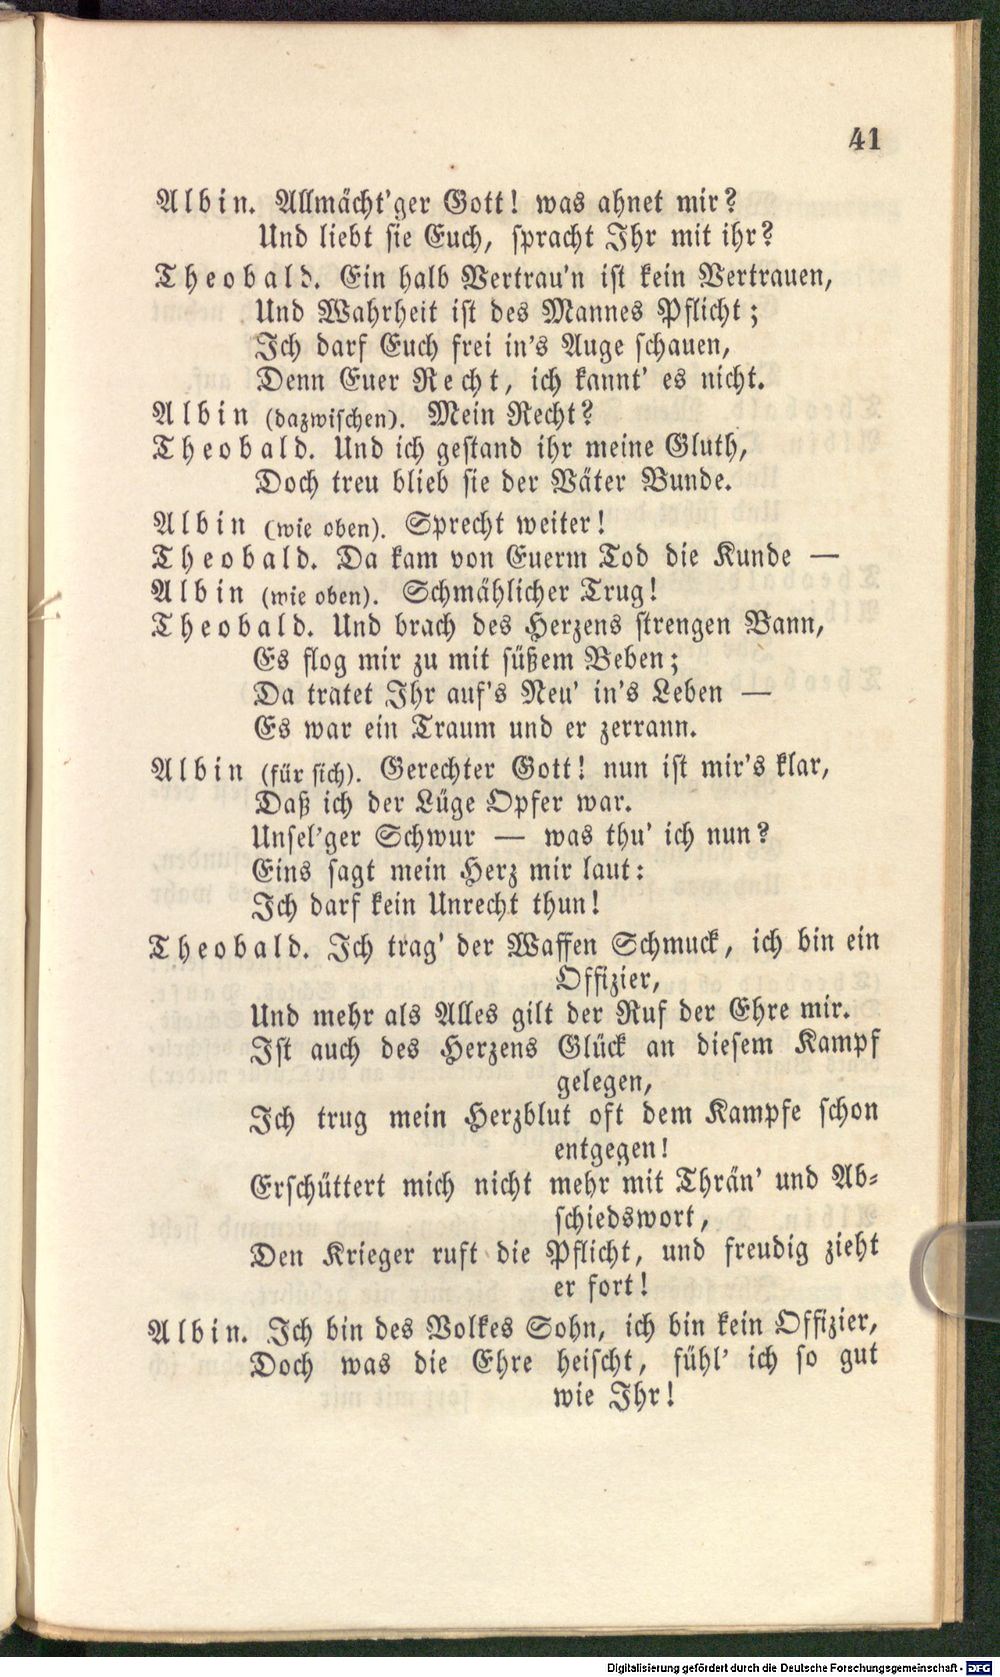 41
Albin. Allmächt'ger Gott! was ahnet mir?
Und liebt sie Euch, spracht Ihr mit ihr?
Theobald. Ein halb Vertrau'n ist kein Vertrauen,
Und Wahrheit ist des Mannes Pflicht;
Ich darf Euch frei in's Auge schauen,
Denn Euer Recht, ich kannt' es nicht.
Albin (dazwischen). Mein Recht?
Theobald. Und ich gestand ihr meine Gluth,
Doch treu blieb sie der Väter Bunde.
Albin (wie oben). Sprecht weiter!
Theobald. Da kam von Euerm Tod die Kunde —
Albin (wie oben). Schmählicher Trug!
Theobald. Und brach des Herzens strengen Bann,
Es flog mir zu mit süßem Beben;
Da tratet Ihr auf's Neu' in's Leben —
Es war ein Traum und er zerrann.
Albin (für sich). Gerechter Gott! nun ist mir's klar,
Daß ich der Lüge Opfer war.
Unsel'ger Schwur — was thu' ich nun?
Eins sagt mein Herz mir laut:
Ich darf kein Unrecht thun!
Theobald. Ich trag' der Waffen Schmuck, ich bin ein
Offizier,
Und mehr als Alles gilt der Ruf der Ehre mir.
Ist auch des Herzens Glück an diesem Kampf
gelegen,
Ich trug mein Herzblut oft dem Kampfe schon
entgegen!
Erschüttert mich nicht mehr mit Thrän' und Ab-
schiedswort,
Den Krieger ruft die Pflicht, und freudig zieht
er fort!
Albin. Ich bin des Volkes Sohn, ich bin kein Offizier,
Doch was die Ehre heischt, fühl' ich so gut
wie Ihr!
Digitalisierung gefördert durch die Deutsche Forschungsgemeinschaft - DFG